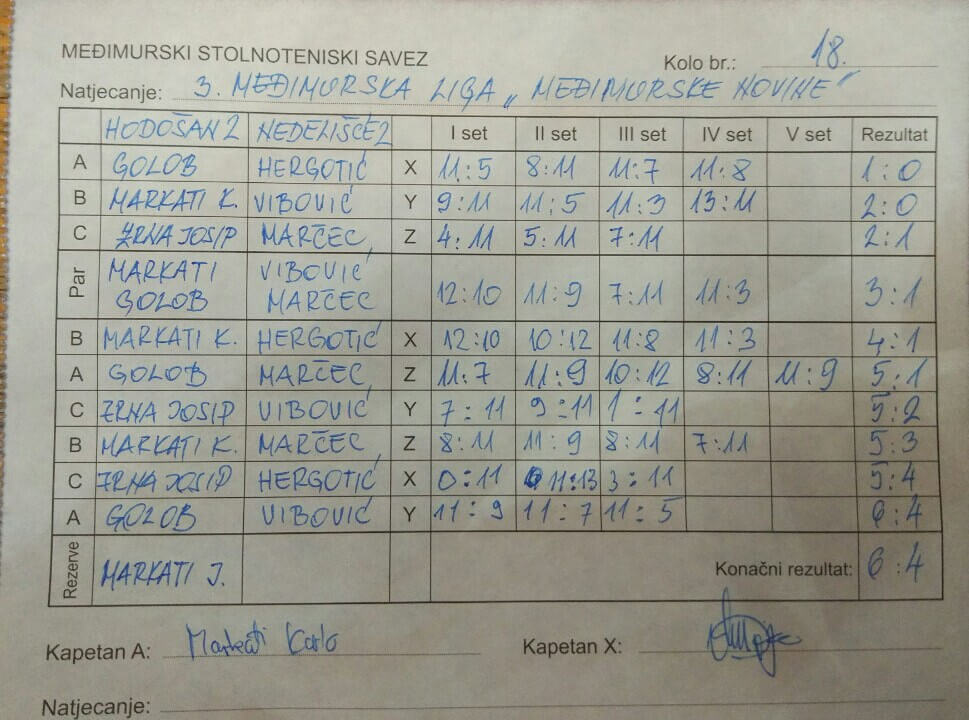 MEĐIMURSKI STOLNOTENISKI SAVEZ
Kolo br.: 18.
Natjecanje: 3. MEĐIMURSKA LIGA „MEĐIMURSKE NOVINE"
HODOŠAN 2 NEDELIŠĆE 2 I set II set III set IV set V set Rezultat
A GOLOB HERGOTIĆ X 11:5 8:11 11:7 11:8 1:0
B MARKATI K. VIBOVIĆ Y 9:11 11:5 11:3 13:11 2:0
C ZRNA JOSIP MARČEC Z 4:11 5:11 7:11 2:1
Par MARKATI VIBOVIĆ
GOLOB MARČEC 12:10 11:9 7:11 11:3 3:1
B MARKATI K. HERGOTIĆ X 12:10 10:12 11:8 11:3 4:1
A GOLOB MARČEC Z 11:7 11:9 10:12 8:11 11:9 5:1
C ZRNA JOSIP VIBOVIĆ Y 7:11 9:11 1:11 5:2
B MARKATI K. MARČEC Z 8:11 11:9 8:11 7:11 5:3
C ZRNA JOSIP HERGOTIĆ X 0:11 11:13 3:11 5:4
A GOLOB VIBOVIĆ Y 11:9 11:7 11:5 6:4
Rezerve MARKATI J. Konačni rezultat: 6:4
Kapetan A: Markati Karlo Kapetan X:
Natjecanje: